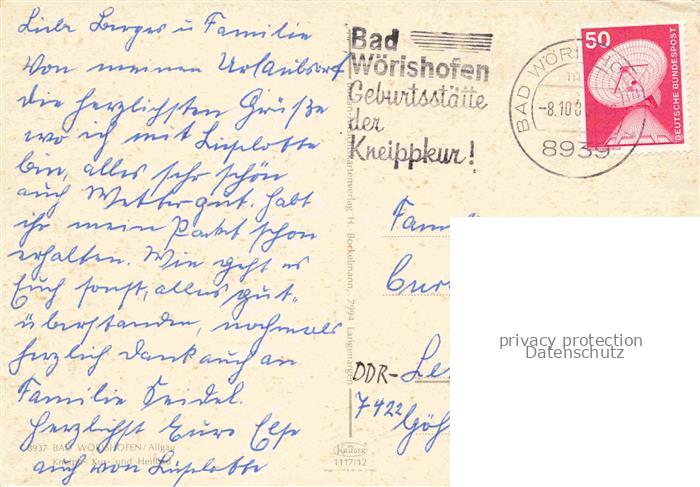 Liebe Berges u Familie
Von meinen Urlaubsort
die herzlichsten Grüße
wo ich mit Liselotte
bin, alles sehr schön
auch Wetter gut. Habt
ihr mein Paket schon
erhalten. Wie geht es
Euch sonst, alles gut
überstanden, nochmals
herzlich Dank auch an
Familie Seidel.
Herzlichst Eure Else
auch von Liselotte
8937 BAD WÖRISHOFEN/Allgäu
Kneipp- Kur- und Heilbad
Bad
Wörishofen
Geburtsstätte
der
Kneippkur!
BAD WÖRIS
-8.10.8
8939
50
DEUTSCHE BUNDESPOST
Ansichtskartenverlag H. Bockelmann, 7994 Langenargen
Fam
Cur
DDR- Le
7422 Göh
Krüger
1117/12
privacy protection
Datenschutz